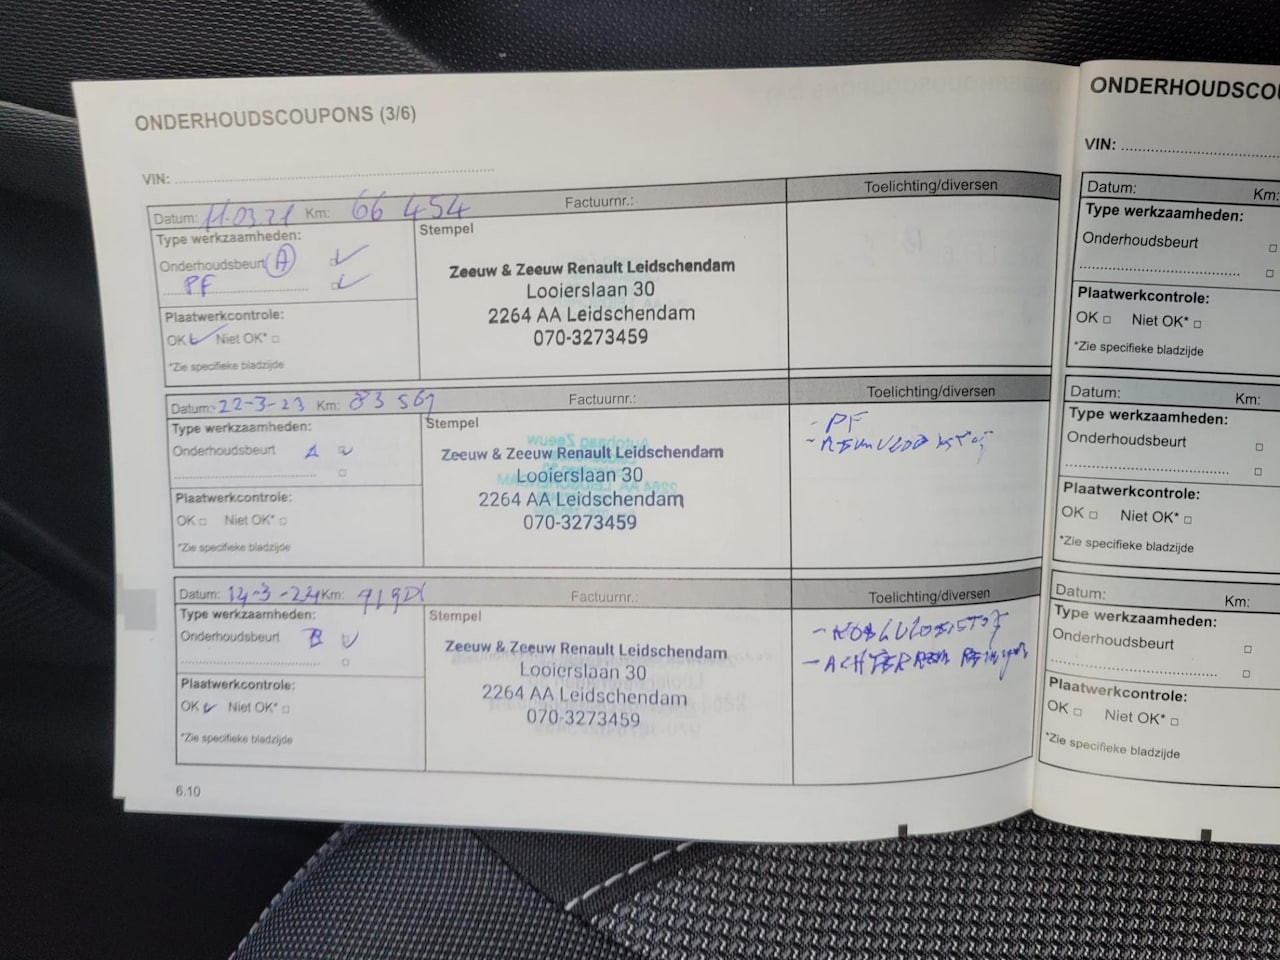 ONDERHOUDSCOUPONS (3/6)
VIN:
Datum: 11.03.21 Km: 66 454 Factuurnr.: Toelichting/diversen
Type werkzaamheden:
Onderhoudsbeurt A
PF
Plaatwerkcontrole:
OK Niet OK*
*Zie specifieke bladzijde
Stempel
Zeeuw & Zeeuw Renault Leidschendam
Looierslaan 30
2264 AA Leidschendam
070-3273459
Datum: 22-3-23 Km: 83 561 Factuurnr.: Toelichting/diversen
Type werkzaamheden:
Onderhoudsbeurt A
Plaatwerkcontrole:
OK Niet OK*
*Zie specifieke bladzijde
Stempel
Zeeuw & Zeeuw Renault Leidschendam
Looierslaan 30
2264 AA Leidschendam
070-3273459
- PF
- REMVLOEISTOF
Datum: Km: Factuurnr.: Toelichting/diversen
Type werkzaamheden:
Onderhoudsbeurt B
Plaatwerkcontrole:
OK Niet OK*
*Zie specifieke bladzijde
Stempel
Zeeuw & Zeeuw Renault Leidschendam
Looierslaan 30
2264 AA Leidschendam
070-3273459
- KOELVLOEISTOF
- ACHTERREM
6.10
ONDERHOUDSCO
VIN:
Datum: Km:
Type werkzaamheden:
Onderhoudsbeurt
Plaatwerkcontrole:
OK Niet OK*
*Zie specifieke bladzijde
Datum: Km:
Type werkzaamheden:
Onderhoudsbeurt
Plaatwerkcontrole:
OK Niet OK*
*Zie specifieke bladzijde
Datum: Km:
Type werkzaamheden:
Onderhoudsbeurt
Plaatwerkcontrole:
OK Niet OK*
*Zie specifieke bladzijde